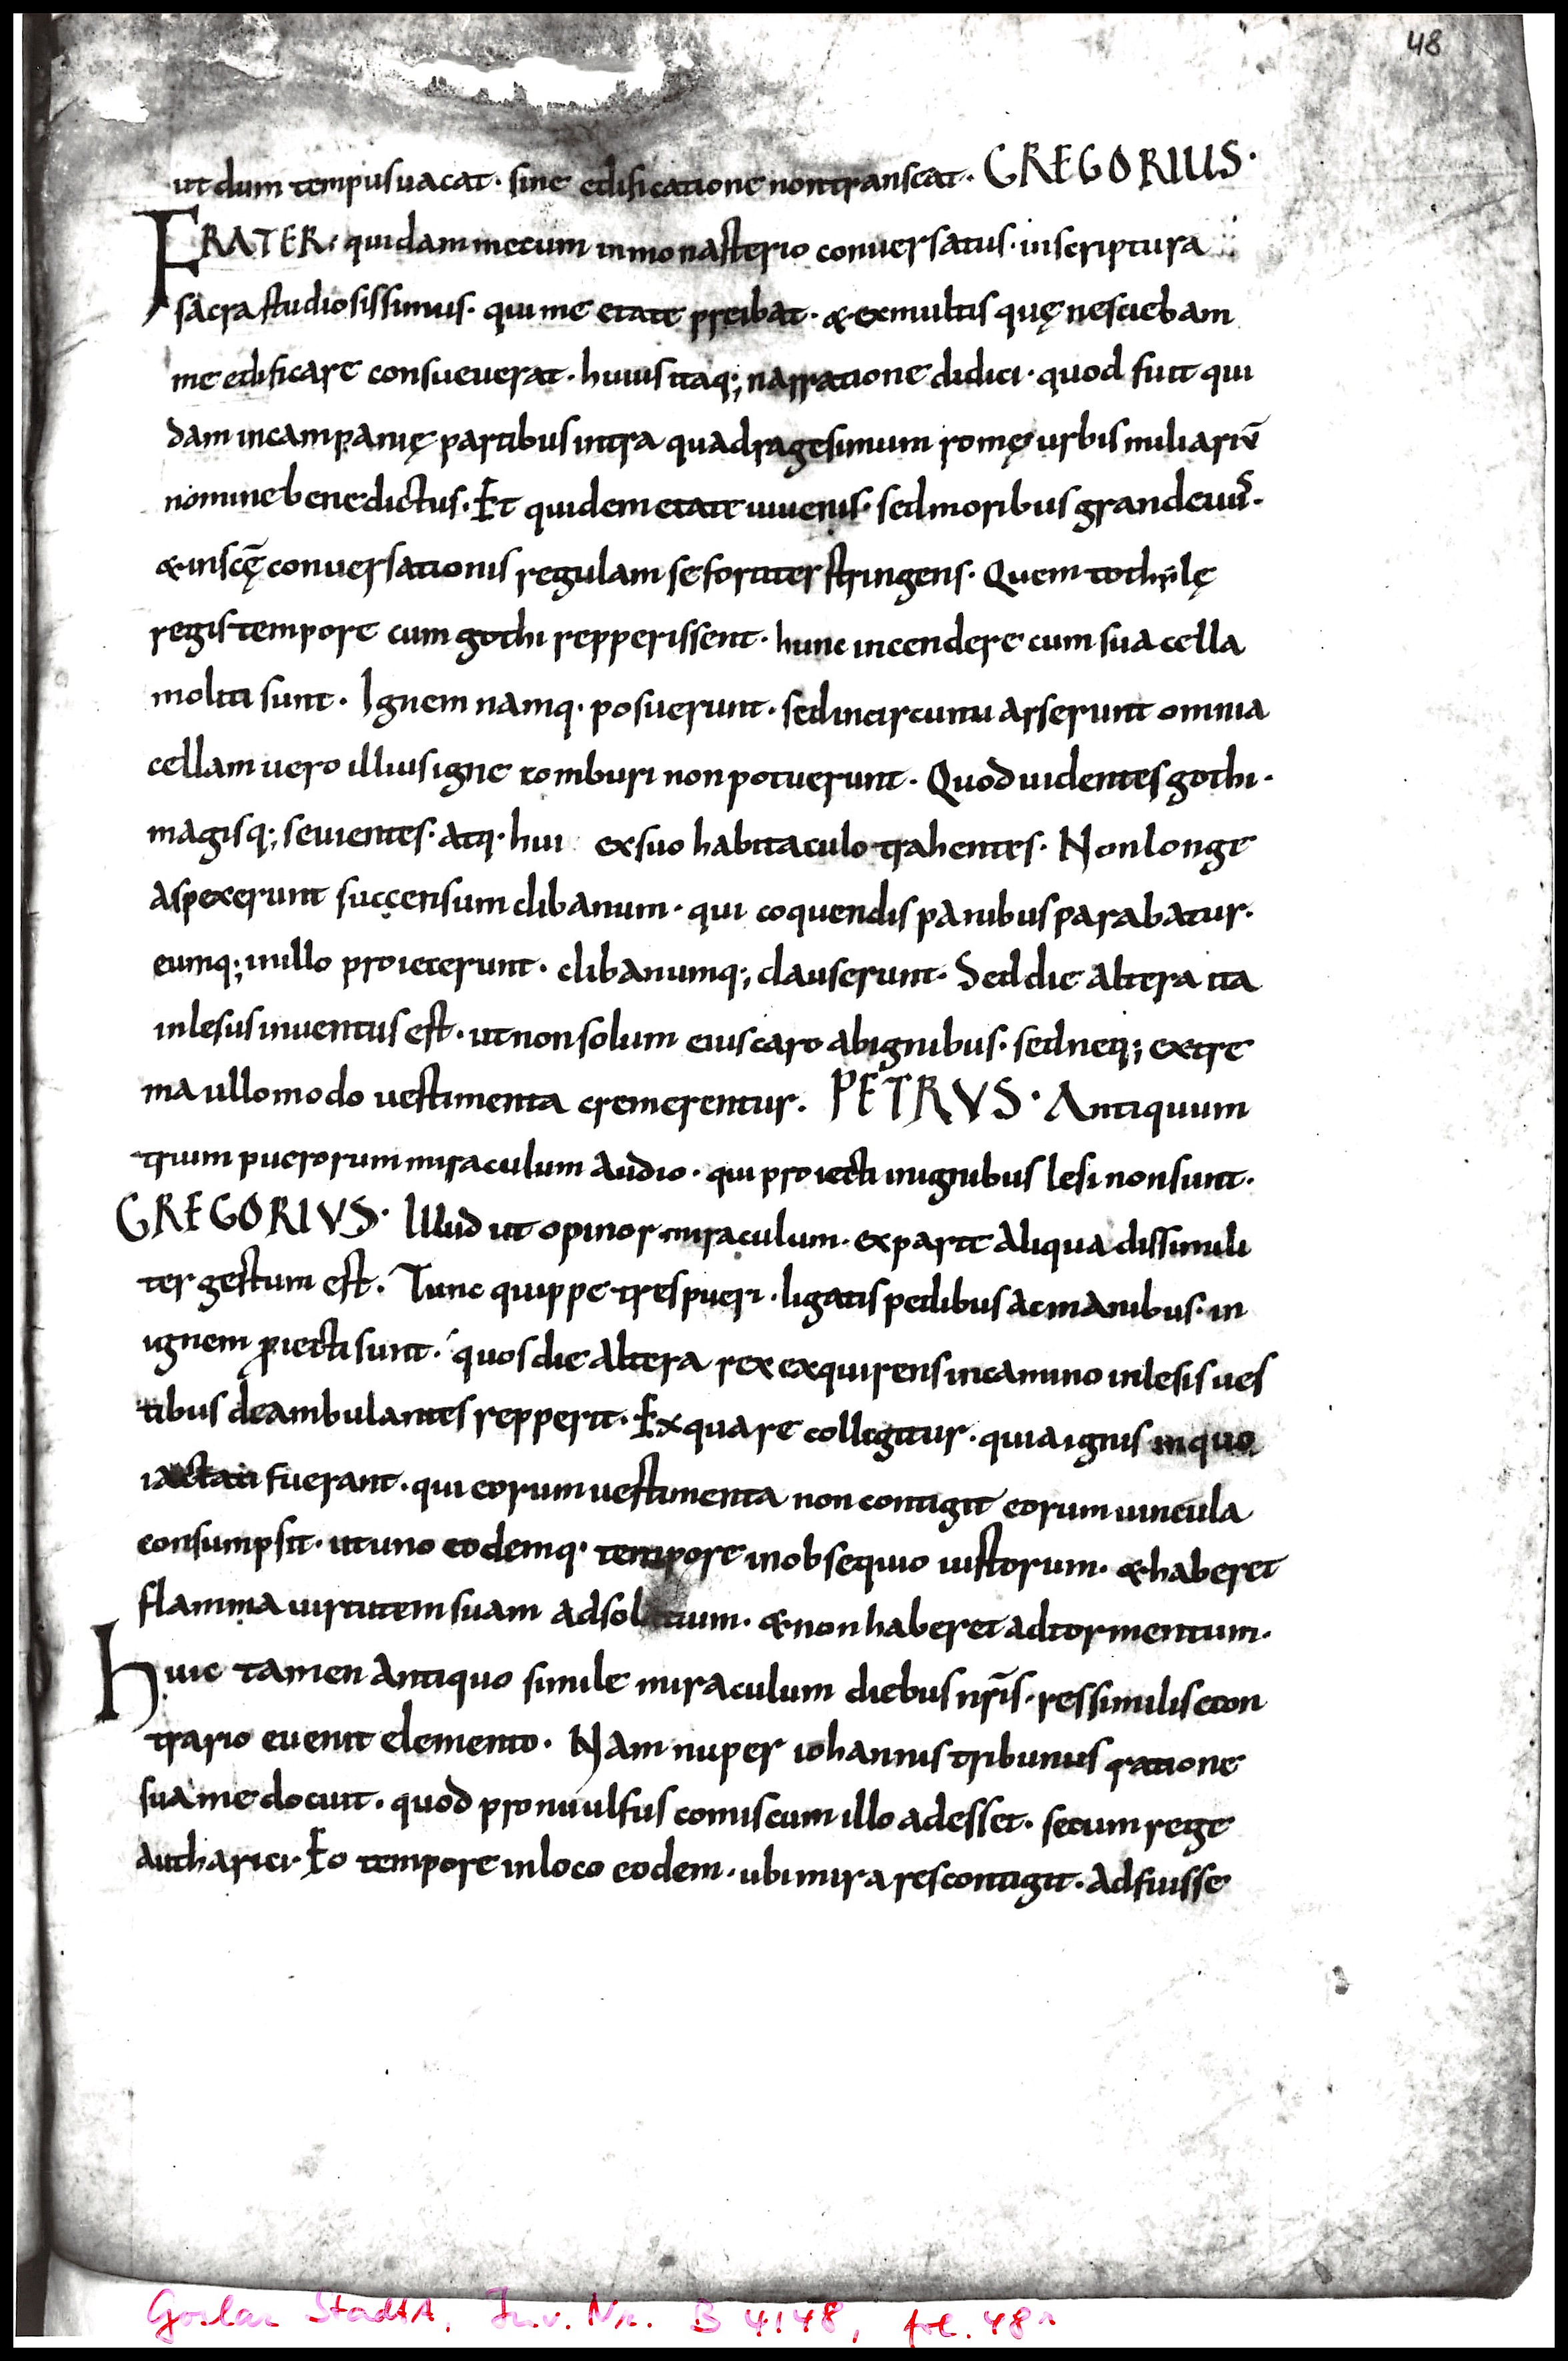 48
ut dum tempus uacat · sine edificatione non transeat · GREGORIUS ·
FRATER · quidam mecum in monasterio conuersatus · in scriptura
sacra studiosissimus · qui me etate preibat · & ex multis quę nesciebam
me edificare consueuerat · huius itaq; narratione didici · quod fuit qui
dam in campanię partibus intra quadragesimum romę urbis miliariū
nomine benedictus · Et quidem etate iuuenis · sed moribus grandeuus ·
& in scę̄ conuersationis regulam se fortiter stringens · Quem tothilę
regis tempore cum gothi repperissent · hunc incendere cum sua cella
moliti sunt · Ignem namq · posuerunt · sed in circuitu arserunt omnia
cellam uero illius igne comburi non potuerunt · Quod uidentes gothi ·
magisq; seuientes · atq · hui ex suo habitaculo trahentes · Non longe
aspexerunt succensum clibanum · qui coquendis panibus parabatur ·
eumq; in illo proiecerunt · clibanumq; clauserunt · Sed die altera ita
inlesus inuentus est · ut non solum eius caro ab ignibus · sed neq; extre
ma ullo modo uestimenta cremerentur · PETRVS · Antiquum
trium puerorum miraculum audio · qui proiecti in ignibus lesi non sunt ·
GREGORIVS · Illud ut opinor miraculum · ex parte aliqua dissimili
ter gestum est · Tunc quippe tres pueri · ligatis pedibus ac manibus · in
ignem ꝓiecti sunt · quos die altera rex exquirens in camino inlesis ues
tibus deambulantes repperit · Ex qua re colligitur · quia ignis in quo
iactati fuerant · qui eorum uestimenta non contigit eorum uincula
consumpsit · ut uno eodemq · tempore in obsequio iustorum · & haberet
flamma uirtutem suam ad solatium · & non haberet ad tormentum ·
Huic tamen antiquo simile miraculum diebus nr̄is · res similis e con
trario euenit elemento · Nam nuper iohannis tribunus ratione
sua me docuit · quod pronuulfus comis cum illo adesset · se cum rege
autharici · Eo tempore in loco eodem · ubi mira res contigit · adfuisse
Goslar StadtA, Inv. Nr. B 4148, fol. 48r